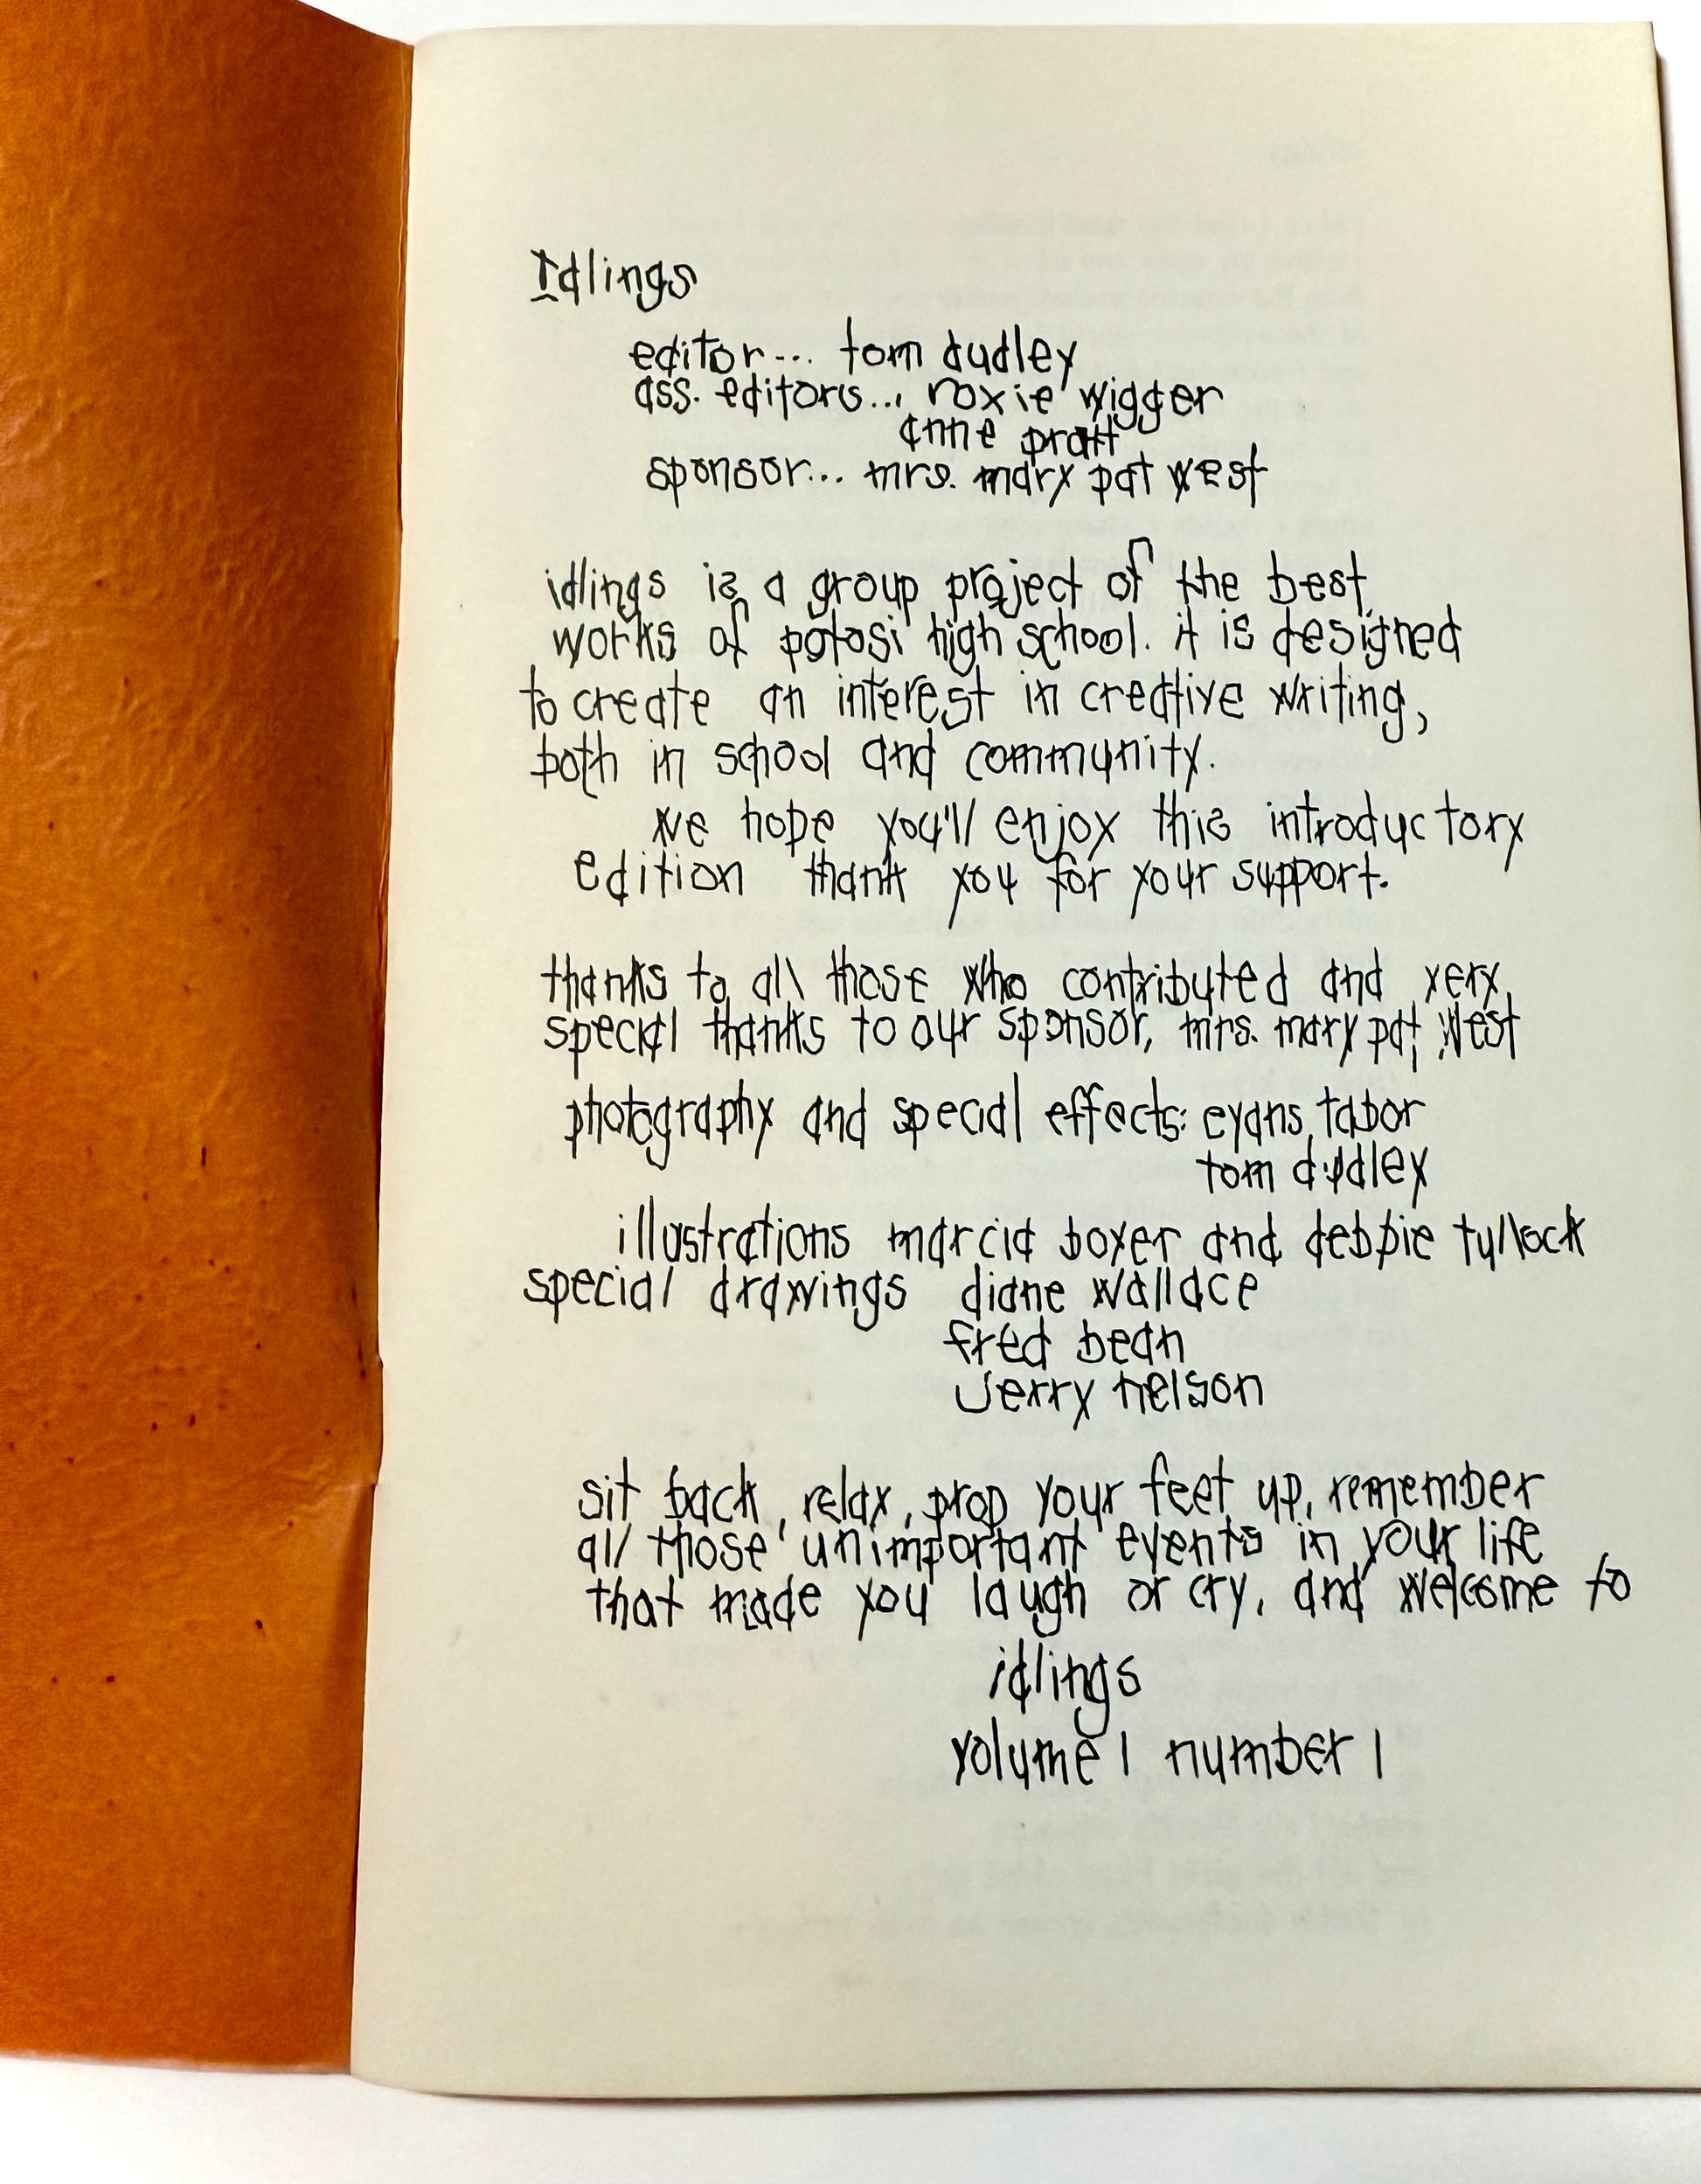 Idlings
editor... tom dudley
ass. editors... roxie wigger
anne pratt
sponsor... mrs. mary pat west
idlings is a group project of the best
works of potosi high school. it is designed
to create an interest in creative writing,
both in school and community.
we hope you'll enjoy this introductory
edition thank you for your support.
thanks to all those who contributed and very
special thanks to our sponsor, mrs. mary pat west
photography and special effects: evans tabor
tom dudley
illustrations marcia boyer and debbie tullock
special drawings diane wallace
fred bean
Jerry nelson
sit back, relax, prop your feet up, remember
all those unimportant events in your life
that made you laugh or cry, and welcome to
idlings
volume 1 number 1